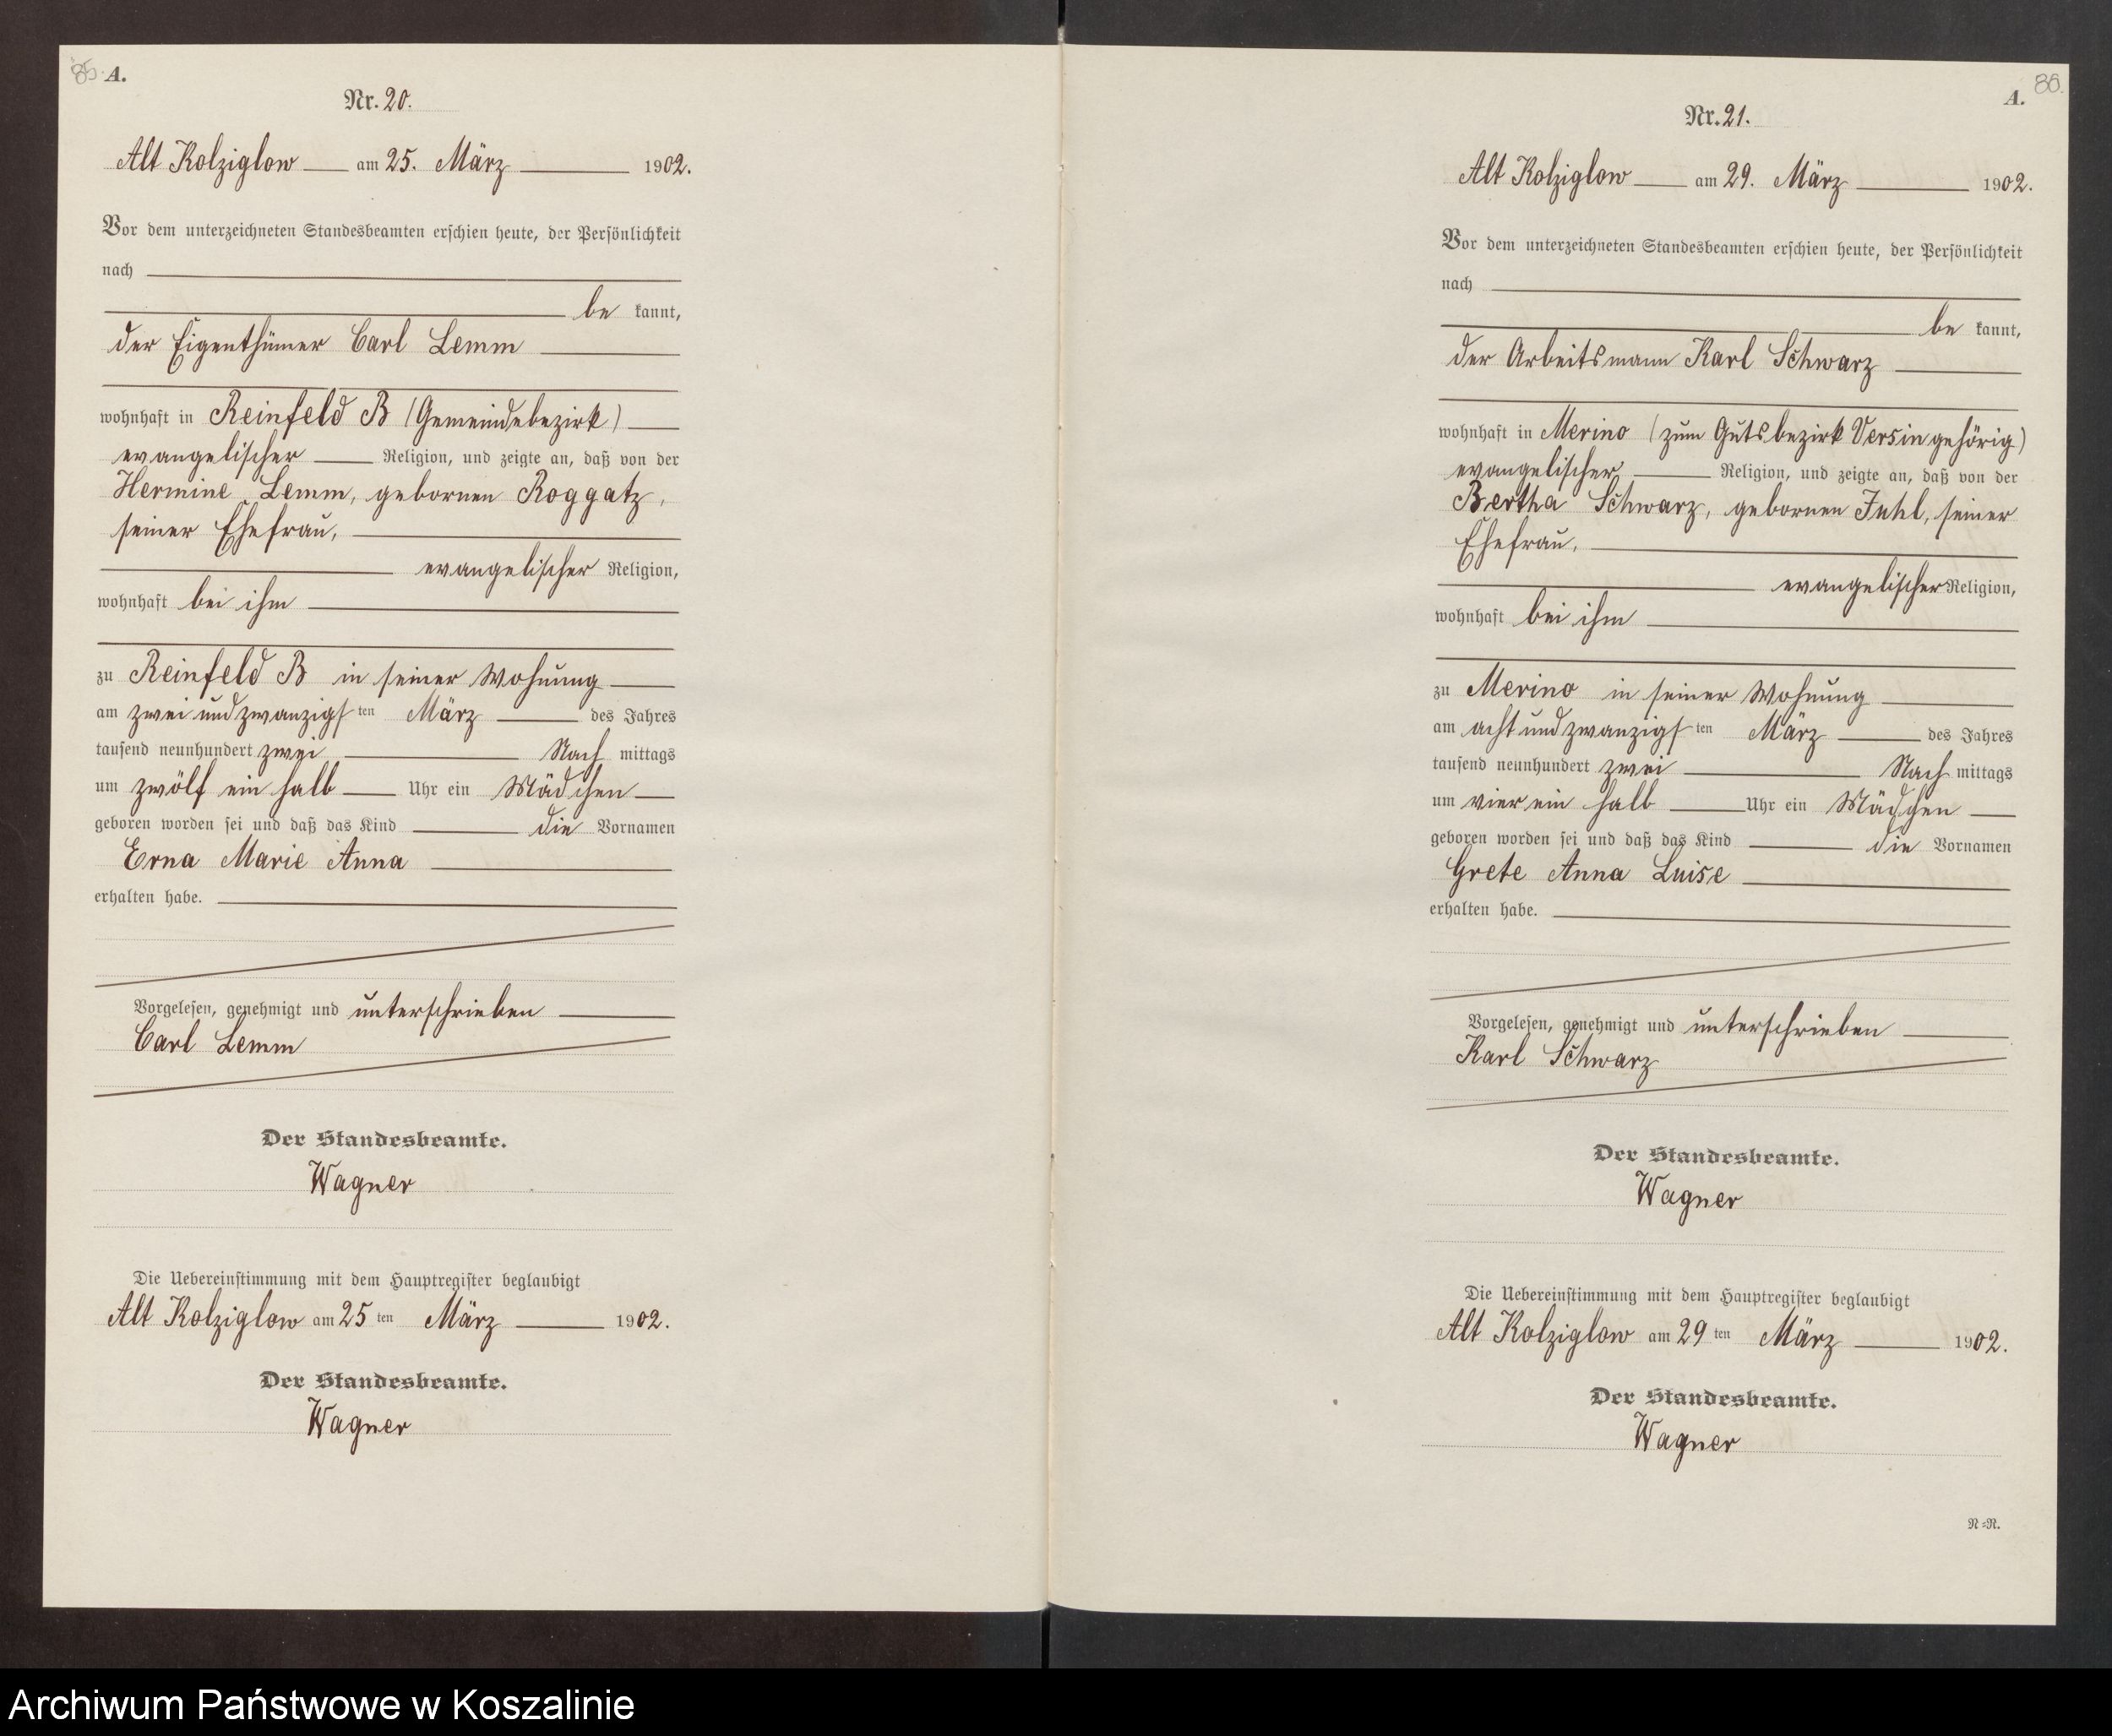 85. A.
Nr. 20.
Alt Kolziglow am 25. März 1902.
Vor dem unterzeichneten Standesbeamten erschien heute, der Persönlichkeit
nach
be kannt,
der Eigenthümer Carl Lemm
wohnhaft in Reinfeld B (Gemeindebezirk)
evangelischer Religion, und zeigte an, daß von der
Hermine Lemm, gebornen Roggatz,
seiner Ehefrau,
evangelischer Religion,
wohnhaft bei ihm
zu Reinfeld B in seiner Wohnung
am zwei und zwanzigsten März des Jahres
tausend neunhundert zwei Nach mittags
um zwölf ein halb Uhr ein Mädchen
geboren worden sei und daß das Kind die Vornamen
Erna Marie Anna
erhalten habe.
Vorgelesen, genehmigt und unterschrieben
Carl Lemm
Der Standesbeamte.
Wagner
Die Uebereinstimmung mit dem Hauptregister beglaubigt
Alt Kolziglow am 25 ten März 1902.
Der Standesbeamte.
Wagner
A. 86.
Nr. 21.
Alt Kolziglow am 29. März 1902.
Vor dem unterzeichneten Standesbeamten erschien heute, der Persönlichkeit
nach
be kannt,
der Arbeitsmann Karl Schwarz
wohnhaft in Merino (zum Gutsbezirk Versin gehörig)
evangelischer Religion, und zeigte an, daß von der
Bertha Schwarz, gebornen Juhl, seiner
Ehefrau,
evangelischer Religion,
wohnhaft bei ihm
zu Merino in seiner Wohnung
am acht und zwanzigsten März des Jahres
tausend neunhundert zwei Nach mittags
um vier ein halb Uhr ein Mädchen
geboren worden sei und daß das Kind die Vornamen
Grete Anna Luise
erhalten habe.
Vorgelesen, genehmigt und unterschrieben
Karl Schwarz
Der Standesbeamte.
Wagner
Die Uebereinstimmung mit dem Hauptregister beglaubigt
Alt Kolziglow am 29 ten März 1902.
Der Standesbeamte.
Wagner
N=R.
Archiwum Państwowe w Koszalinie